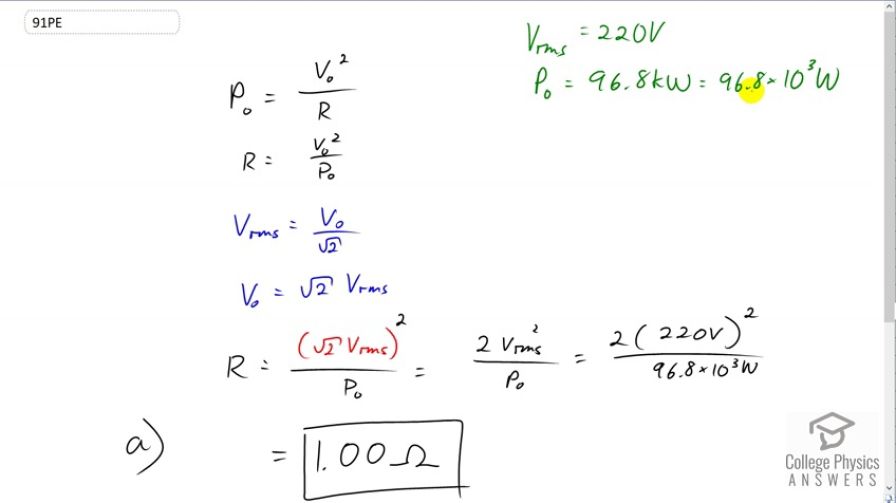 91PE
V_rms = 220V
P_0 = 96.8kW = 96.8 × 10^3 W
P_0 = V_0^2 / R
R = V_0^2 / P_0
V_rms = V_0 / √2
V_0 = √2 V_rms
R = (√2 V_rms)^2 / P_0 = 2 V_rms^2 / P_0 = 2(220V)^2 / 96.8 × 10^3 W
a) = 1.00 Ω
College Physics
ANSWERS